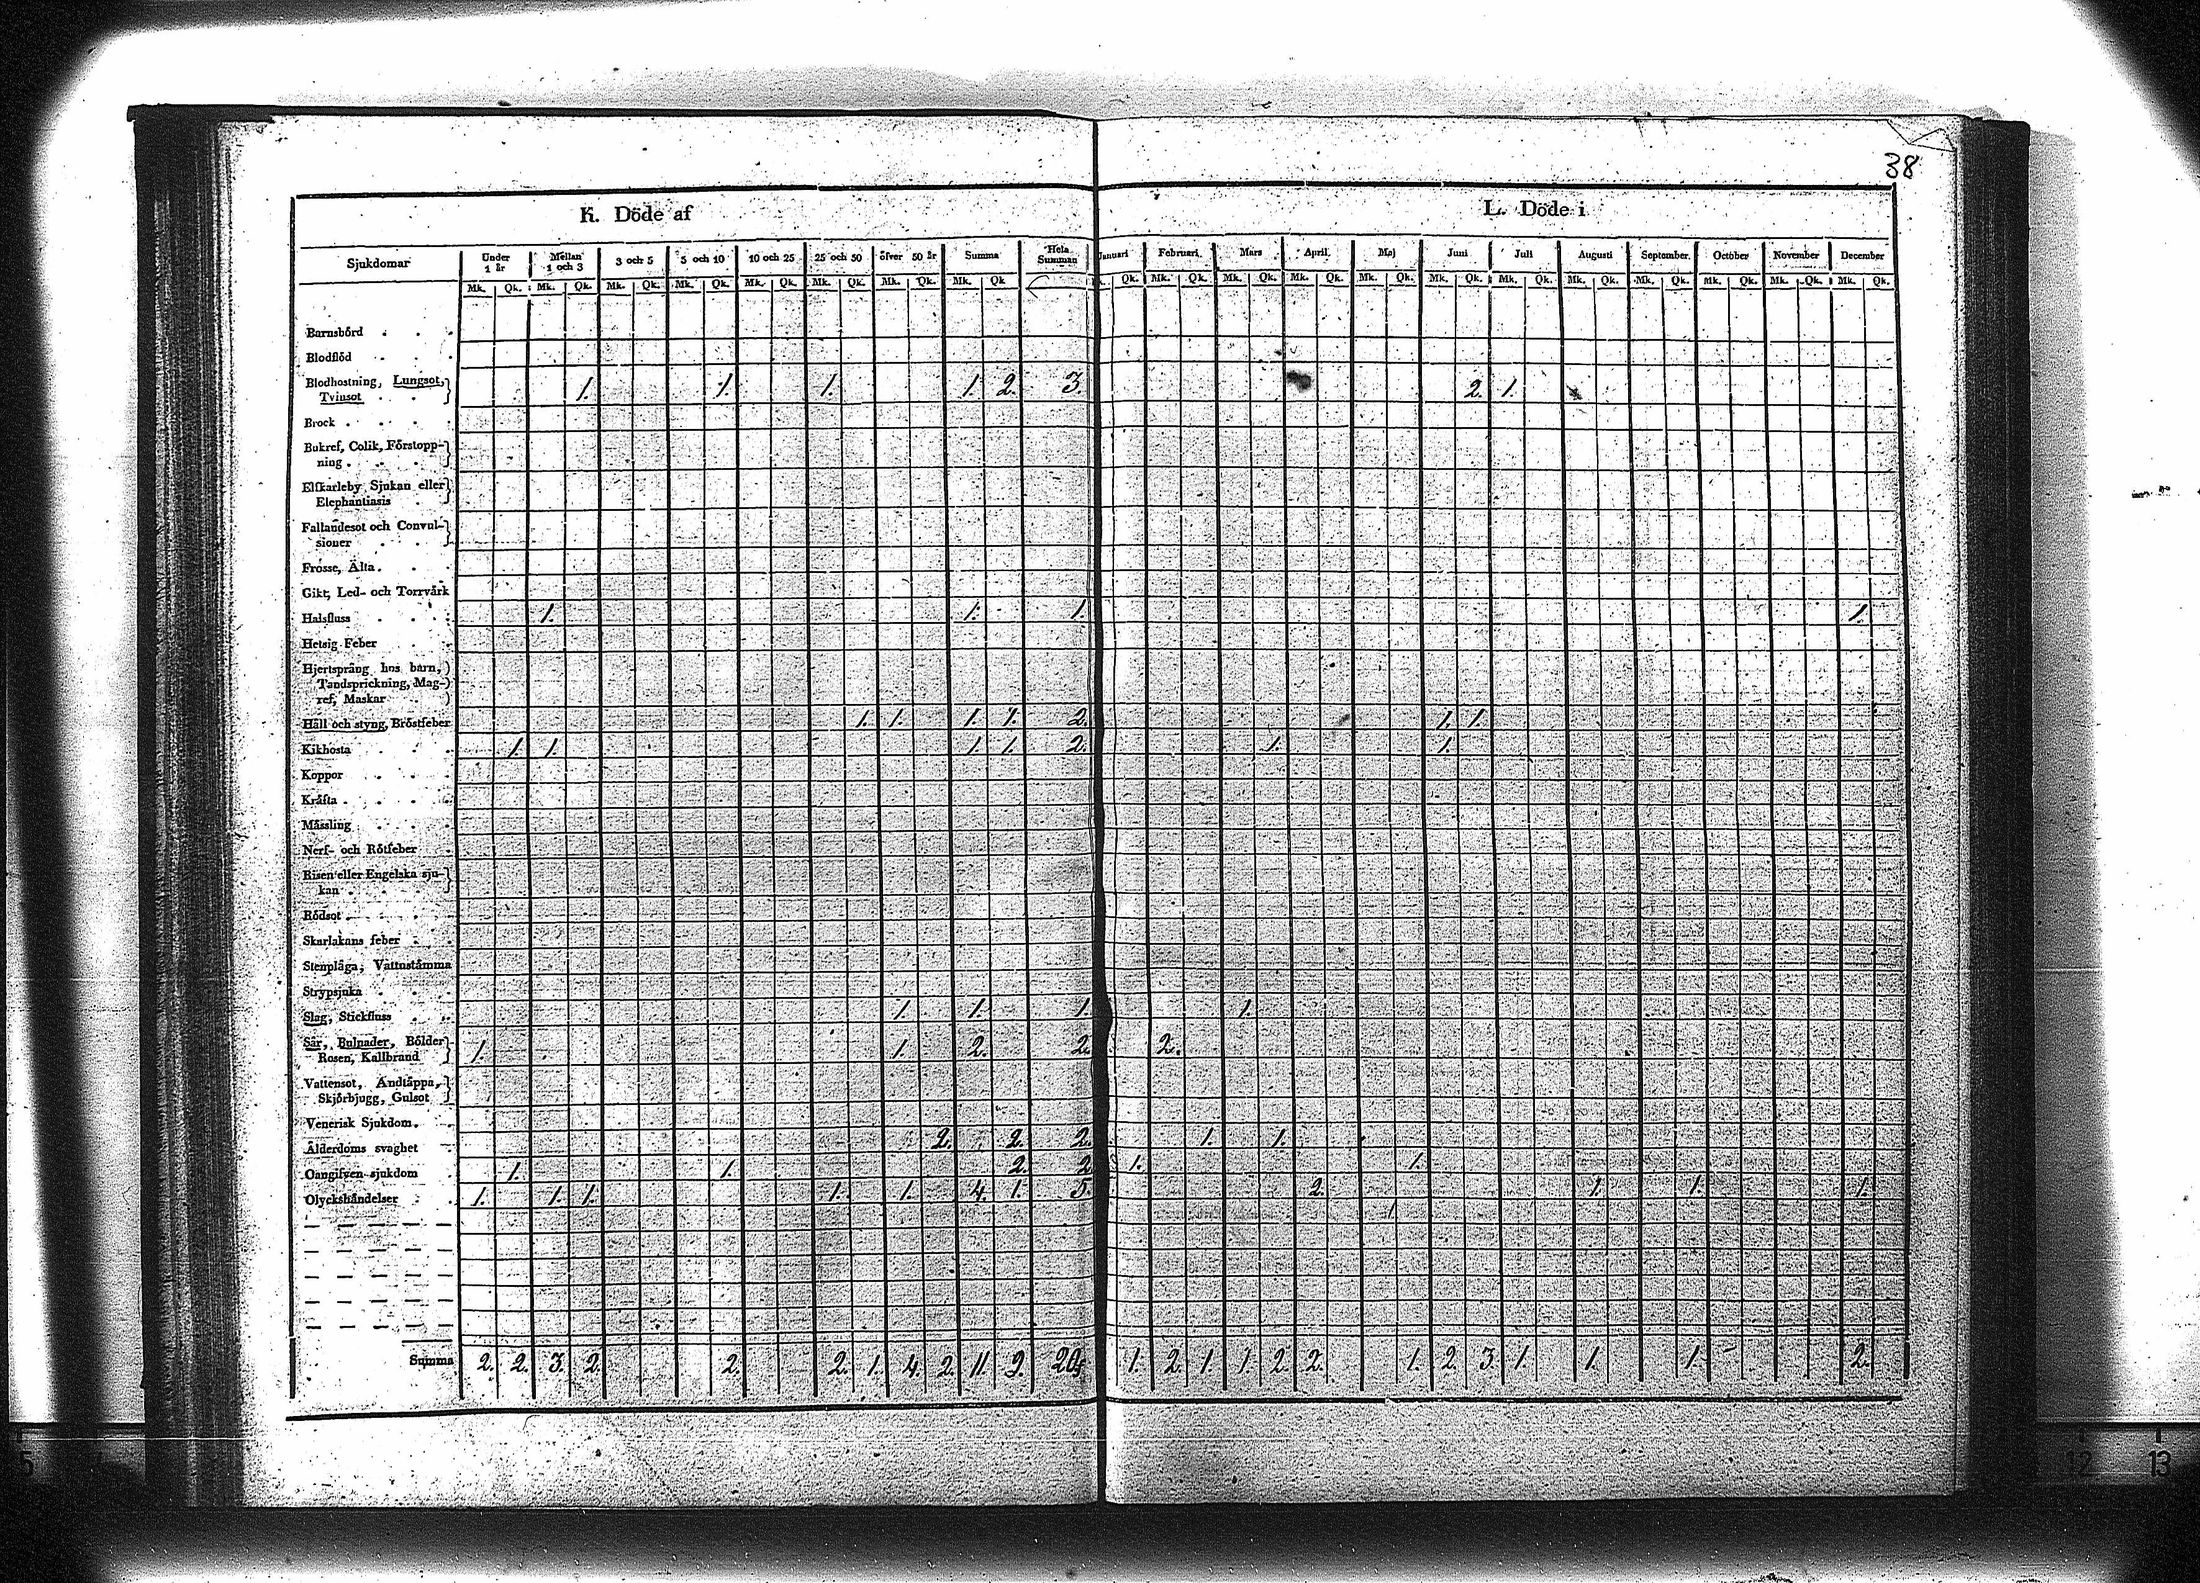 38
K. Döde af
L. Döde i
Sjukdomar Under 1 år Mellan 1 och 3 3 och 5 5 och 10 10 och 25 25 och 50 öfver 50 år Summa Hela Summan Januari Februari. Mars April. Maj Juni Juli Augusti September. October November December
Mk. Qk. Mk. Qk. Mk. Qk. Mk. Qk. Mk. Qk. Mk. Qk. Mk. Qk. Mk. Qk Qk. Mk. Qk. Mk. Qk. Mk. Qk. Mk. Qk. Mk. Qk. Mk. Qk. Mk. Qk. Mk. Qk. Mk. Qk. Mk. Qk. Mk. Qk.
Barnsbörd
Blodflöd
Blodhostning, Lungsot,
Tvinsot 1. 1. 1. 1. 2. 3 2. 1.
Brock
Bukref, Colik, Förstopp-
ning
Elfkarleby Sjukan eller
Elephantiasis
Fallandesot och Convul-
sioner
Frosse, Älta
Gikt, Led- och Torrvärk
Halsfluss 1. 1. 1. 1.
Hetsig Feber
Hjertsprång hos barn,
Tandsprickning, Mag-
ref, Maskar
Håll och styng, Bröstfeber 1. 1. 1. 1. 2. 1. 1.
Kikhosta 1. 1. 1. 1. 2. 1. 1.
Koppor
Kräfta
Mässling
Nerf- och Rötfeber
Risen eller Engelska sju-
kan
Rödsot
Skarlakans feber
Stenplåga, Vattnstämma
Strypsjuka
Slag, Stickfluss 1. 1. 1. 1.
Sår, Bulnader, Bölder
Rosen, Kallbrand 1. 1. 2. 2. 2.
Vattensot, Andtäppa,
Skjörbjugg, Gulsot
Venerisk Sjukdom.
Ålderdoms svaghet 2. 2. 2. 1. 1.
Oangifven sjukdom 1. 1. 2. 2 1. 1.
Olyckshändelser 1. 1. 1. 1. 1. 4. 1. 5. 2. 1. 1. 1.
Summa 2. 2. 3. 2. 2. 2. 1. 4. 2. 11. 9. 20 1. 2. 1. 1. 2. 2. 1. 2. 3. 1. 1. 1. 2.
5
12
13